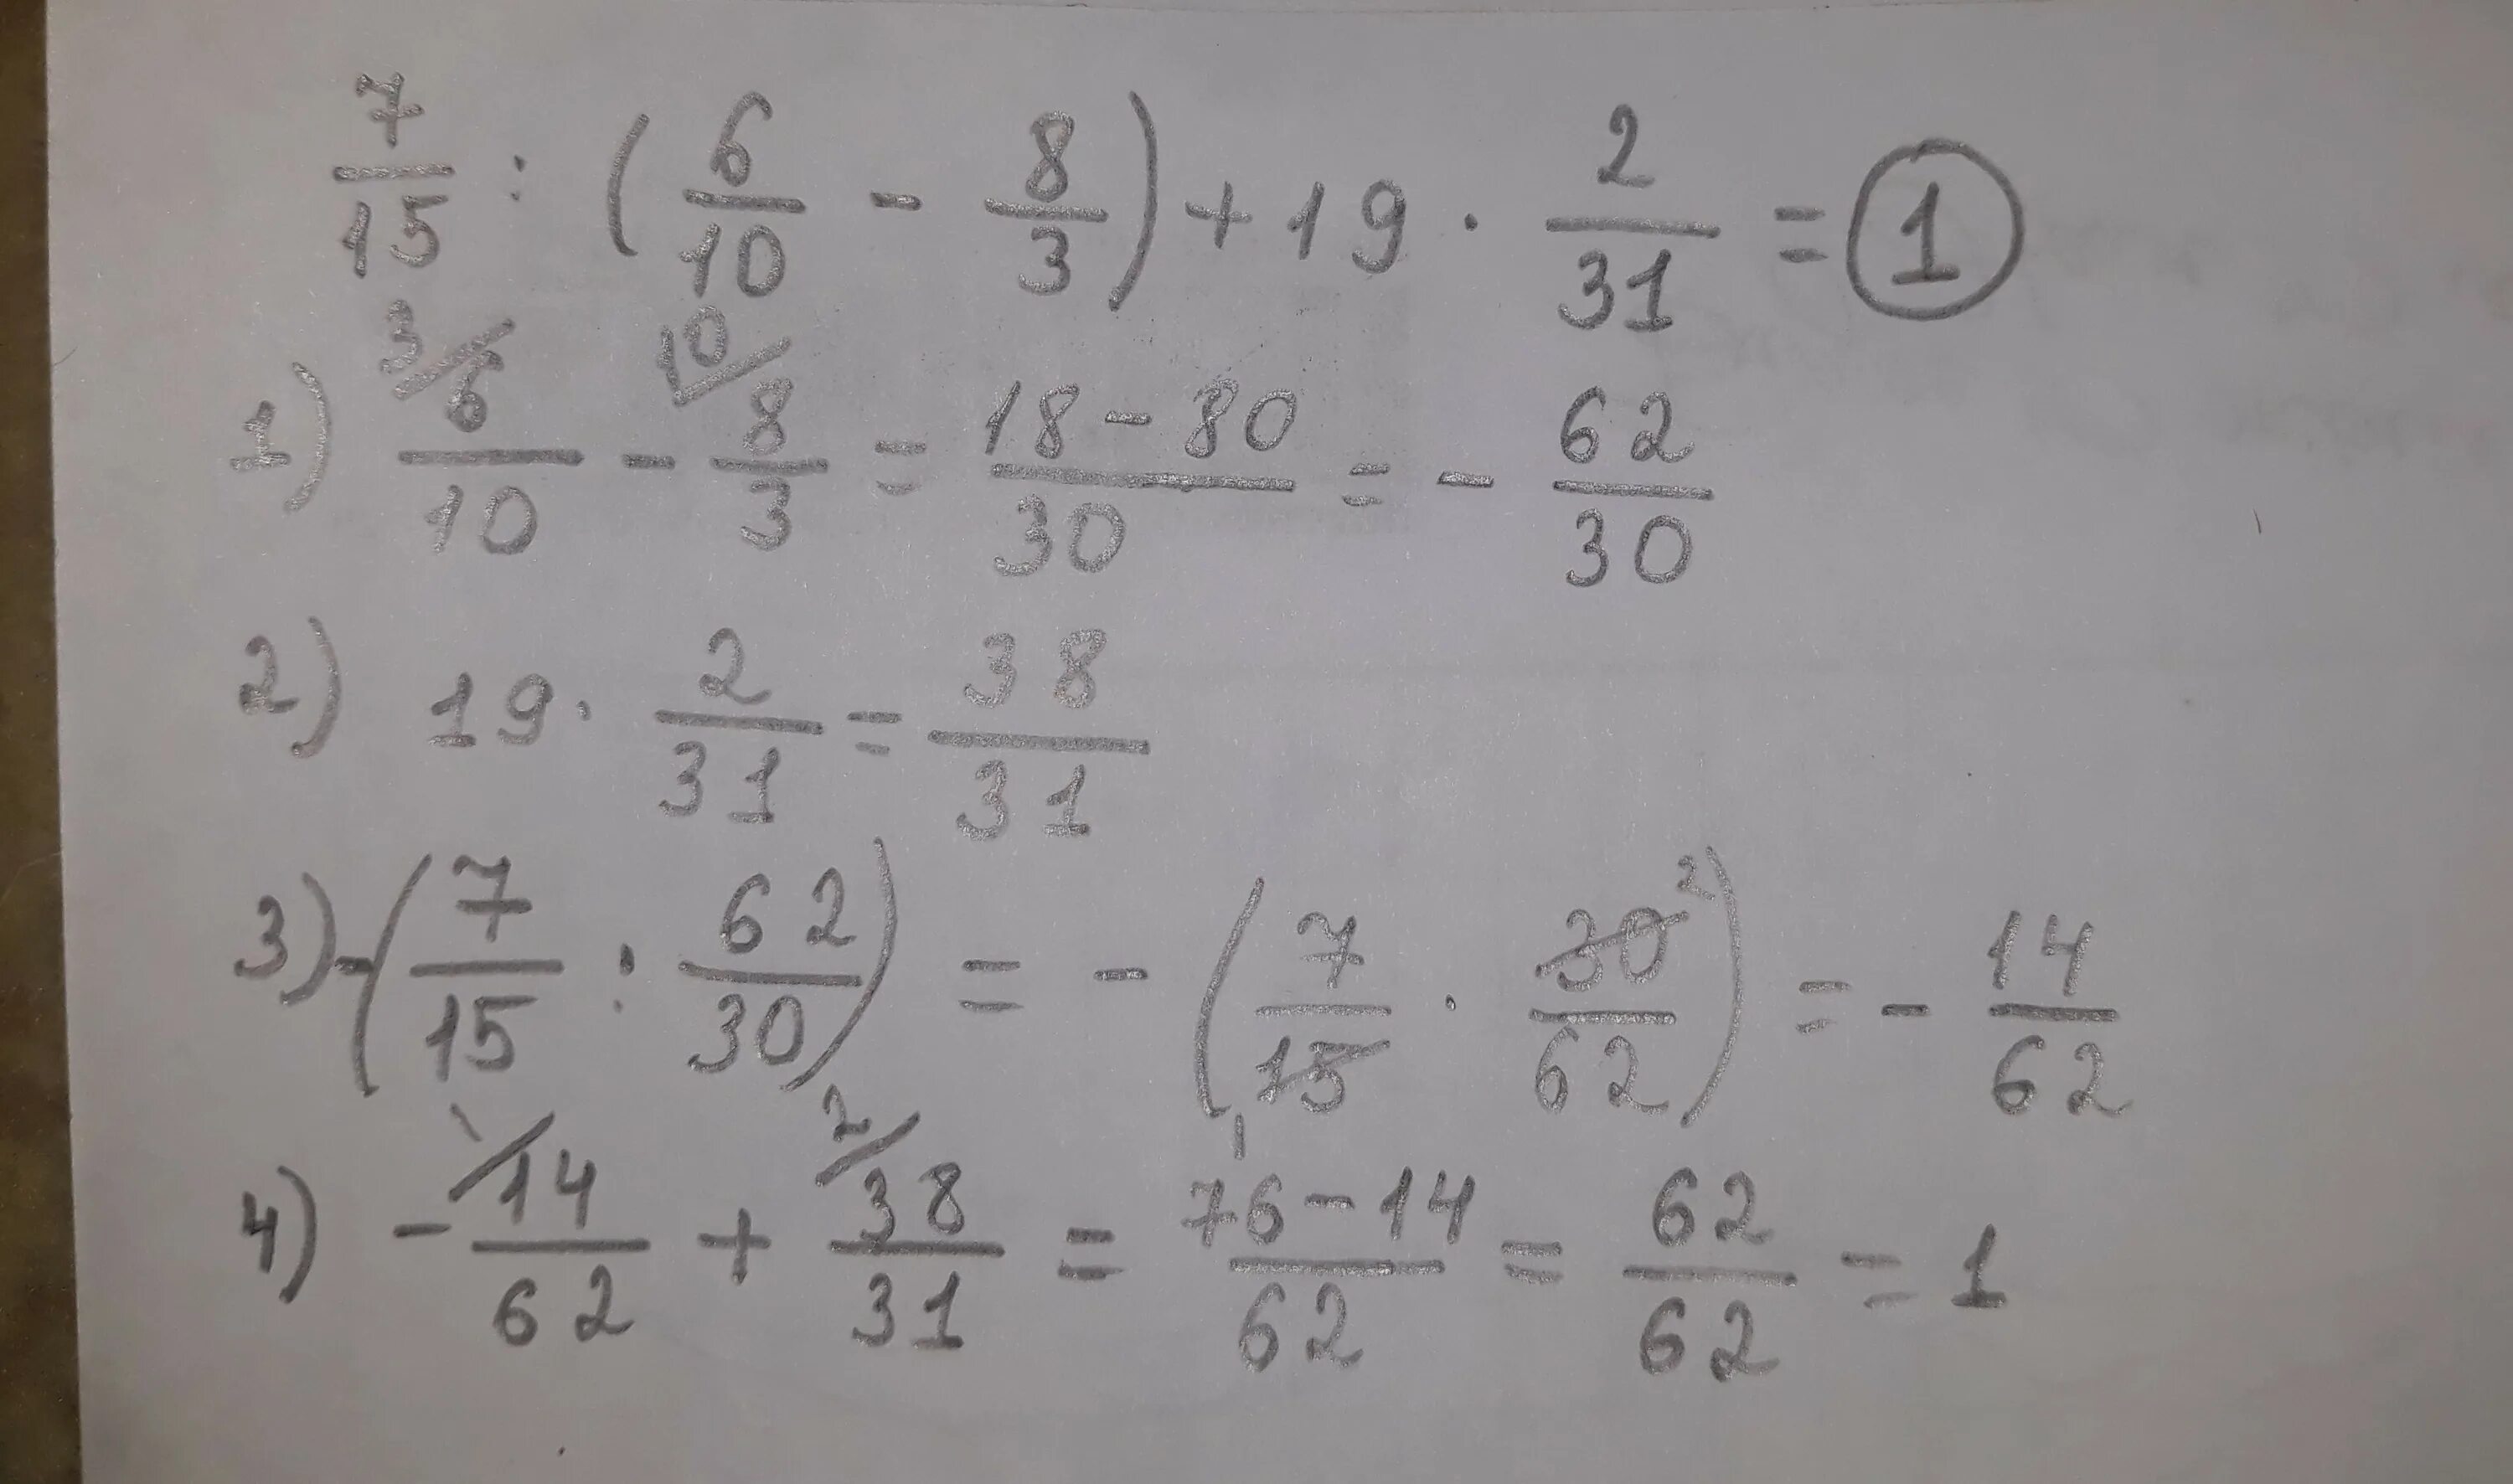 7/15 : (6/10 - 8/3) + 19 · 2/31 = 1
1) 3/ 6/10 - 10/ 8/3 = 18-80/30 = - 62/30
2) 19 · 2/31 = 38/31
3) -(7/15 : 62/30) = - (7/15 1 · 30 2/62) = - 14/62
4) - 1/ 14/62 + 2/ 38/31 = 76-14/62 = 62/62 = 1